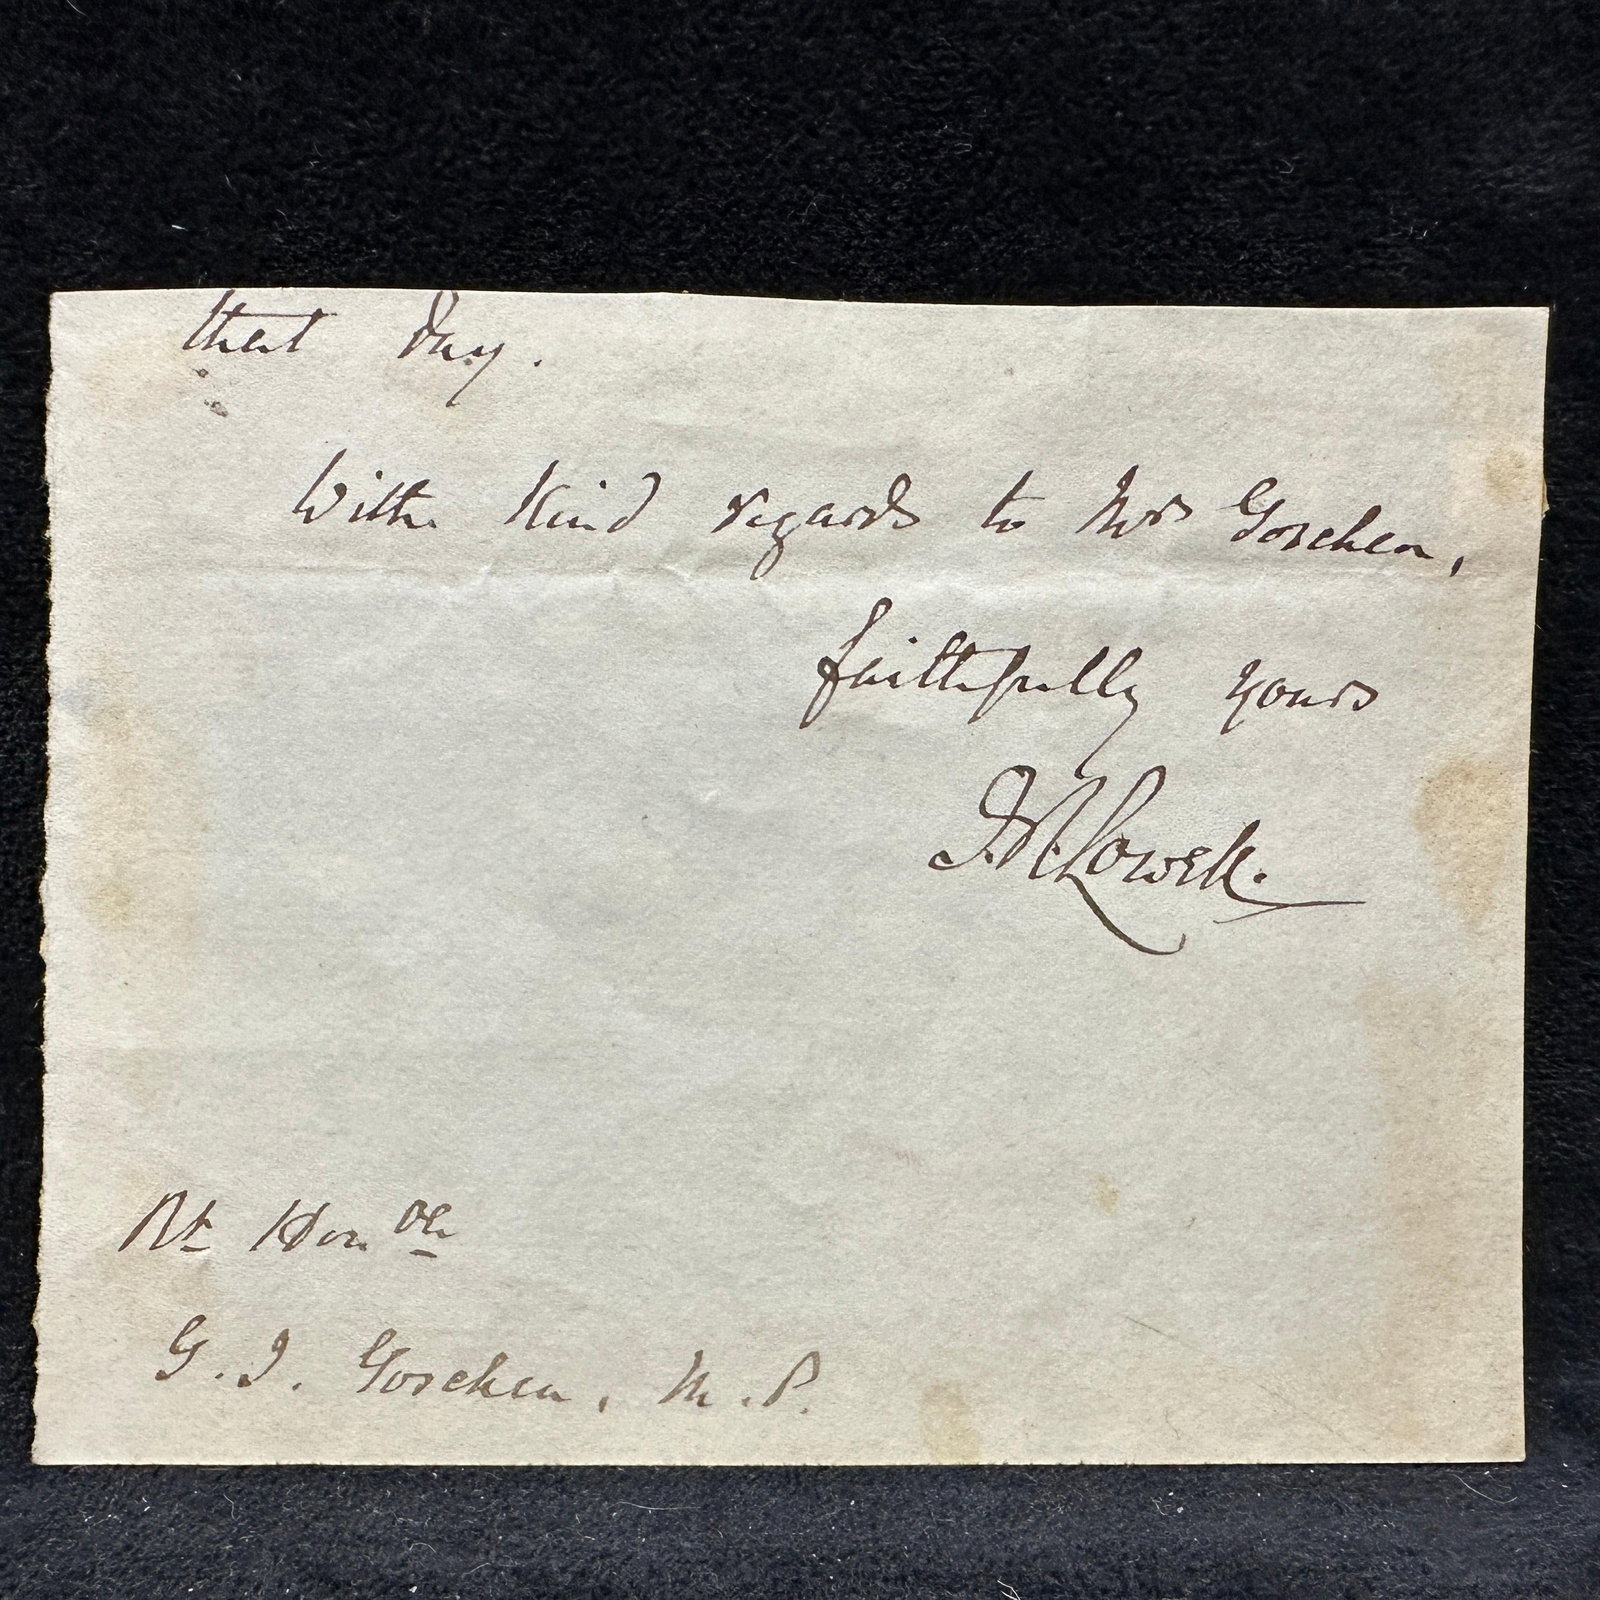 that day.
With kind regards to Mrs Goschen,
faithfully yours
J. R. Lowell.
Rt Honble
G. J. Goschen, M.P.